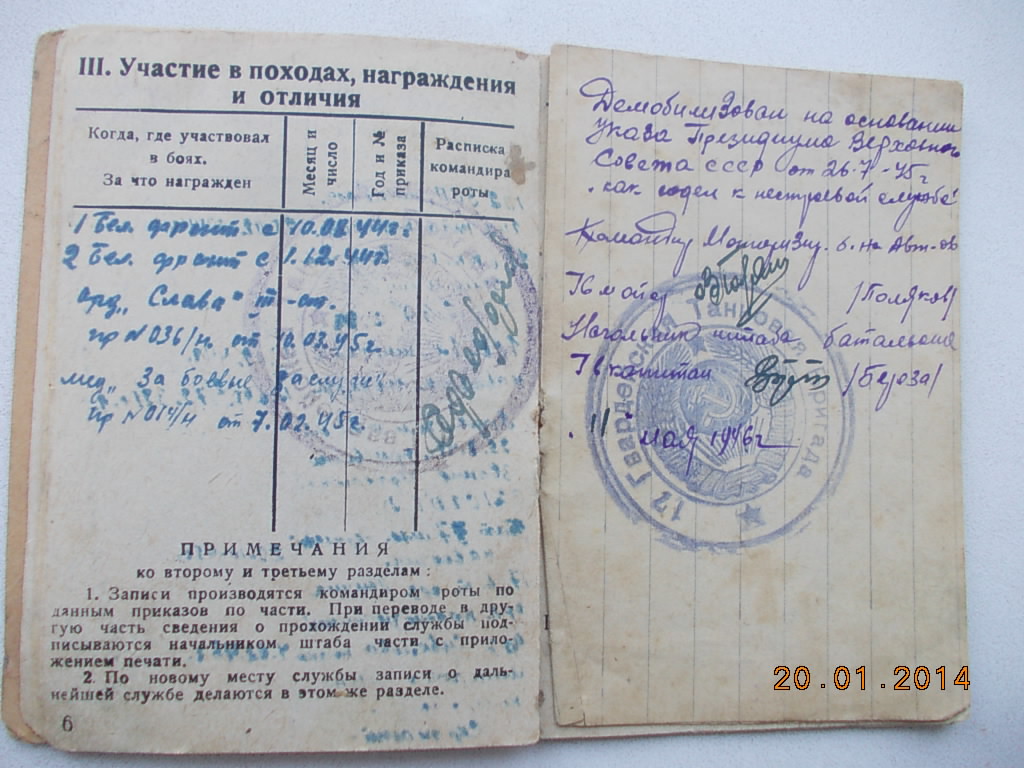 III. Участие в походах, награждения
и отличия
Когда, где участвовал
в боях.
За что награжден
Месяц и
число
Год и №
приказа
Расписка
командира
роты
1 Бел. фронт с 10.08.44г.
2 Бел. фронт с 1.12.44г.
орд. „Слава" III-ст.
пр №036/н от 10.03.45г.
мед „За боевые заслуги"
пр №014/н от 7.02.45г.
ПРИМЕЧАНИЯ
ко второму и третьему разделам:
1. Записи производятся командиром роты по
данным приказов по части. При переводе в дру-
гую часть сведения о прохождении службы под-
писываются начальником штаба части с прило-
жением печати.
2. По новому месту службы записи о даль-
нейшей службе делаются в этом же разделе.
6
Демобилизован на основании
Указа Президиума Верховного
Совета СССР от 26-7-45г
как годен к нестроевой службе
Командир б-на Авт-ов
Гв майор /Поляков/
Начальник штаба батальона
Гв капитан /Береза/
11 мая 1946г
17 Гвардейская Танковая Бригада
20.01.2014